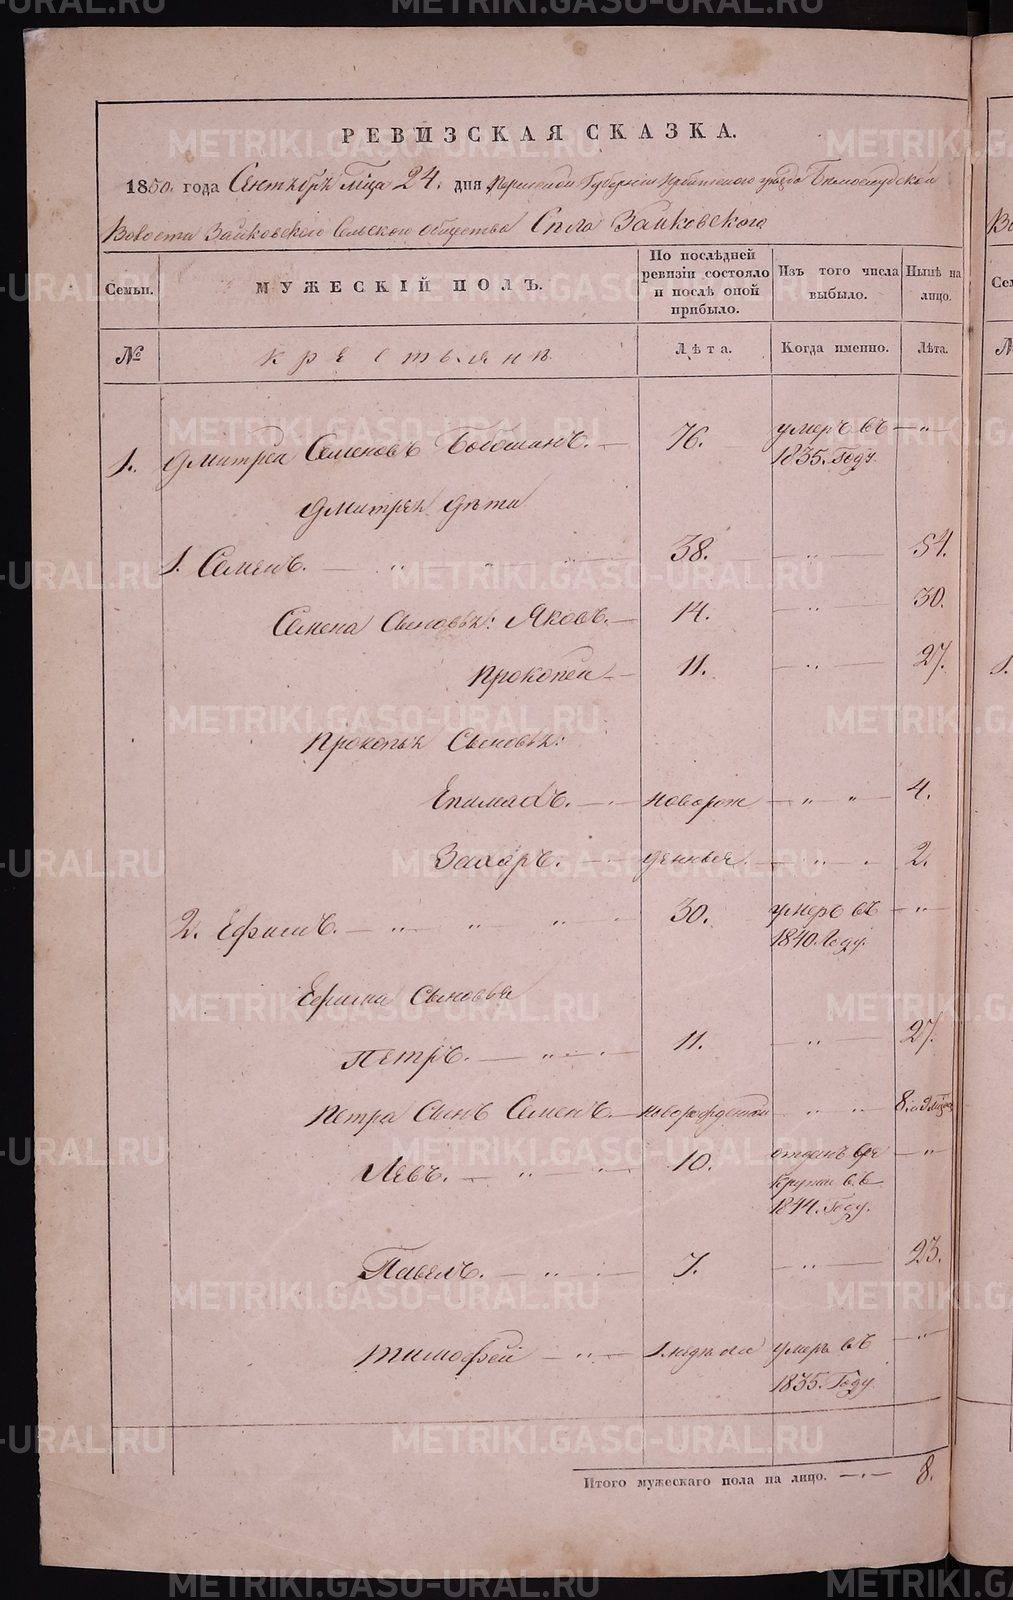 РЕВИЗСКАЯ СКАЗКА.
1850. года Сентября М̃ца 24. дня Пермской Губернiи Ирбитского уѣзда Бѣлослудской
Волости Зайковского Сельского общества Села Зайковского
Семьи.
МУЖЕСКIЙ ПОЛЪ.
По послѣдней ревизiи состояло и послѣ оной прибыло.
Изъ того числа выбыло.
Нынѣ на лицо.
№
крестьяне
Лѣта.
Когда именно.
Лѣта.
1. Дмитрей Семеновъ 76. умеръ въ 1835. Году. — „ —
Дмитрея дѣти
1. Семенъ. — „ „ „ — 38. — „ — 54.
Семена Сыновья: Яковъ. — 14. — „ — 30.
Прокопей — 11. — „ — 27.
Прокопья Сыновья:
Епимахъ. — новорож — „ „ — 4.
Захаръ. — денные. — „ — 2.
2. Ефимъ. — „ „ „ — 30. умеръ въ 1840. Году. — „ —
Ефима Сыновья
Петръ. — „ — 11. — „ — 27.
Петра Сынъ Семенъ. — новорожденной — „ „ —
Левъ. — „ — 10. отданъ въ рекруты въ 1844. Году. — „ —
Павелъ. — „ — 7. — „ — 23.
Тимофей — „ — 1. недѣли умеръ въ 1835. Году. — „ —
Итого мужескаго пола на лицо. — „ — 8.
METRIKI.GASO-URAL.RU